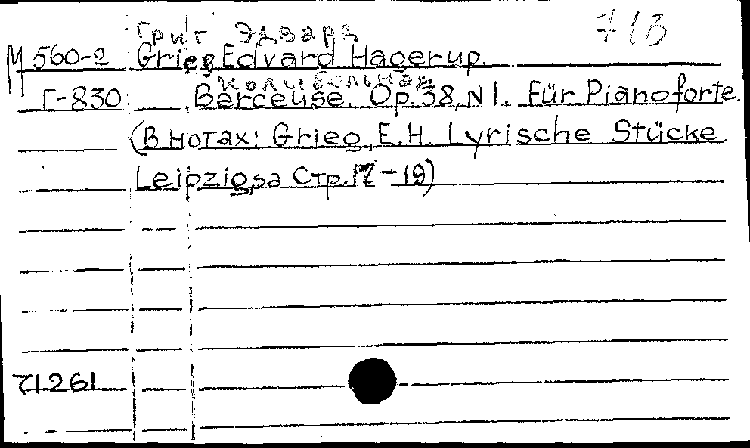 Григ Эдвард 71В
М 560-2 Grieg Edvard Hagerup.
Колыбельная
Г-830 Berceuse. Op. 38, N1. Für Pianoforte.
(В нотах: Grieg, E.H. Lyrische Stücke
Leipzig, sa Стр. 17-19)
71261